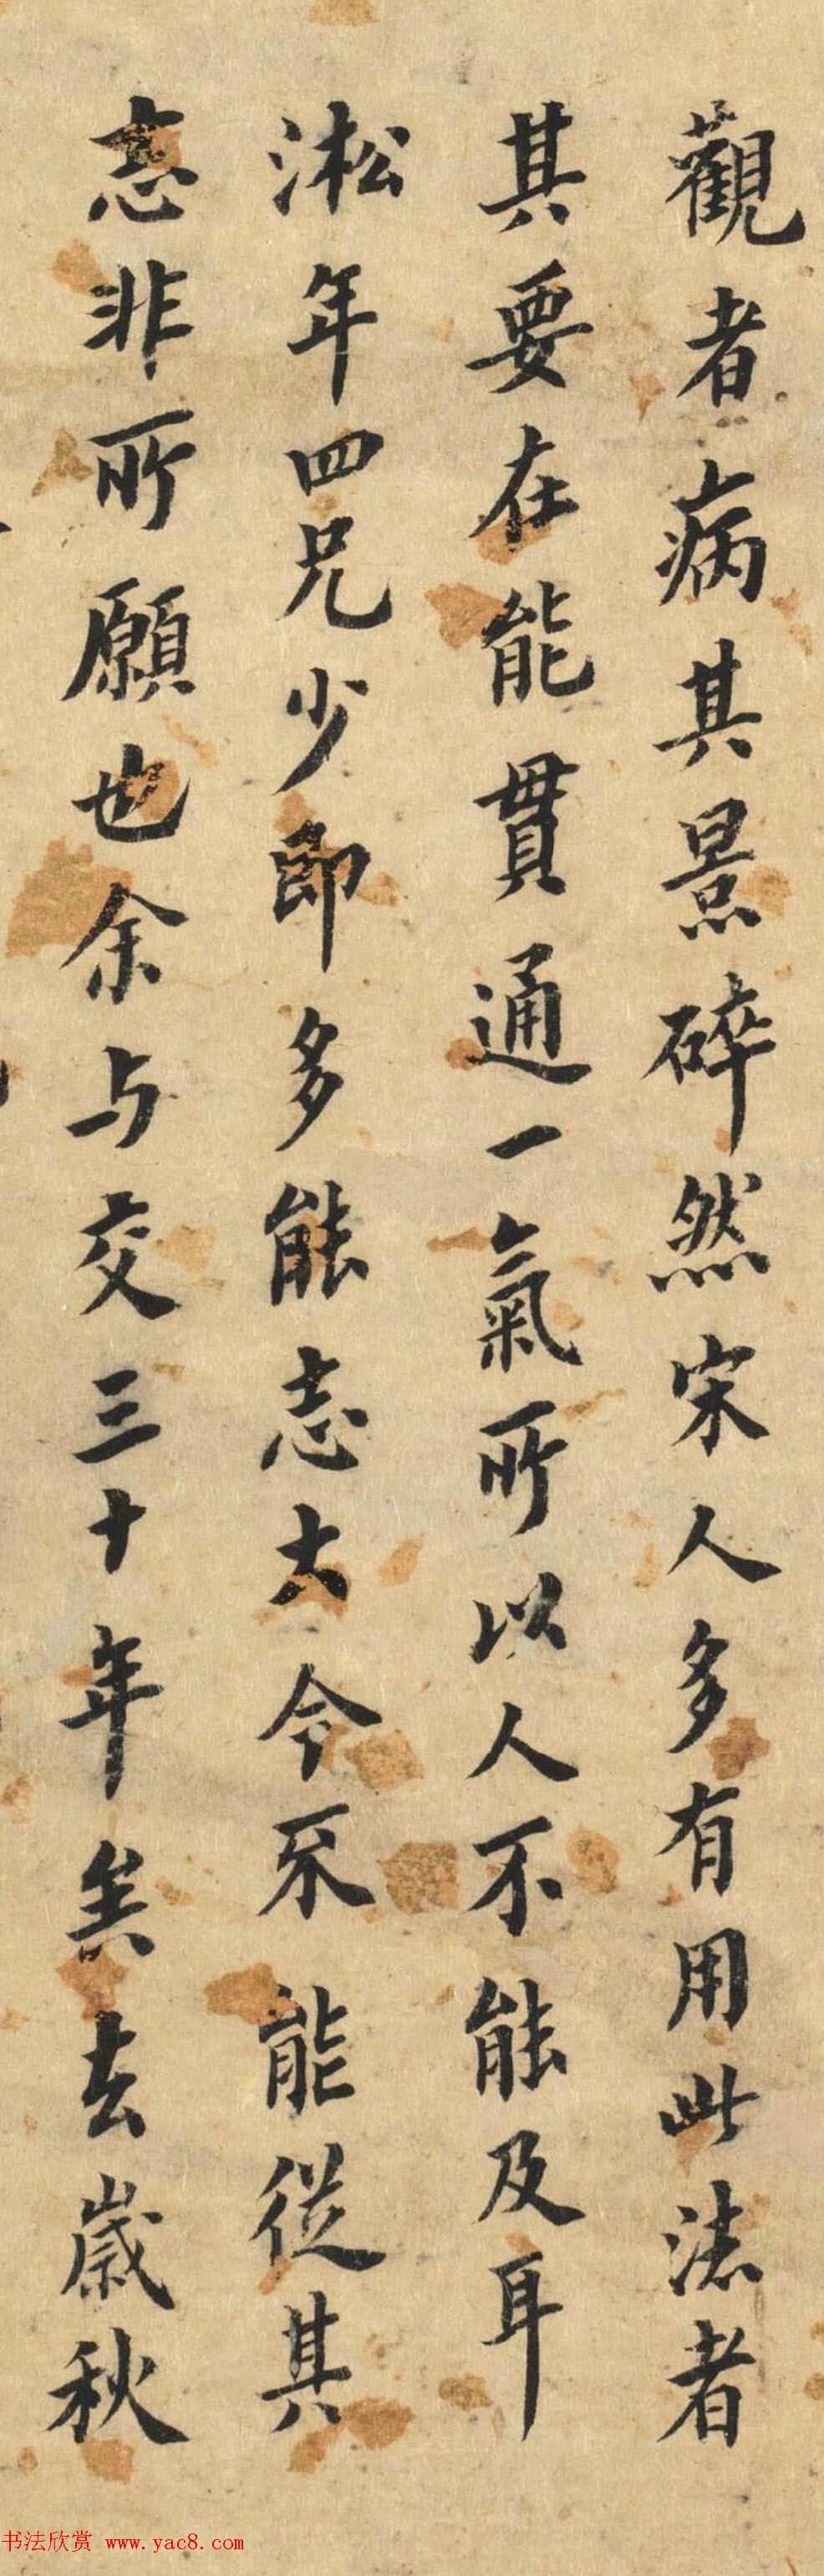 觀者病其景碎然宋人多有用此法者
其要在能貫通一氣所以人不能及耳
淞年四兄少即多能志大今不能從其
志非所願也余与交三十年矣去歲秋
书法欣赏 www.yac8.com